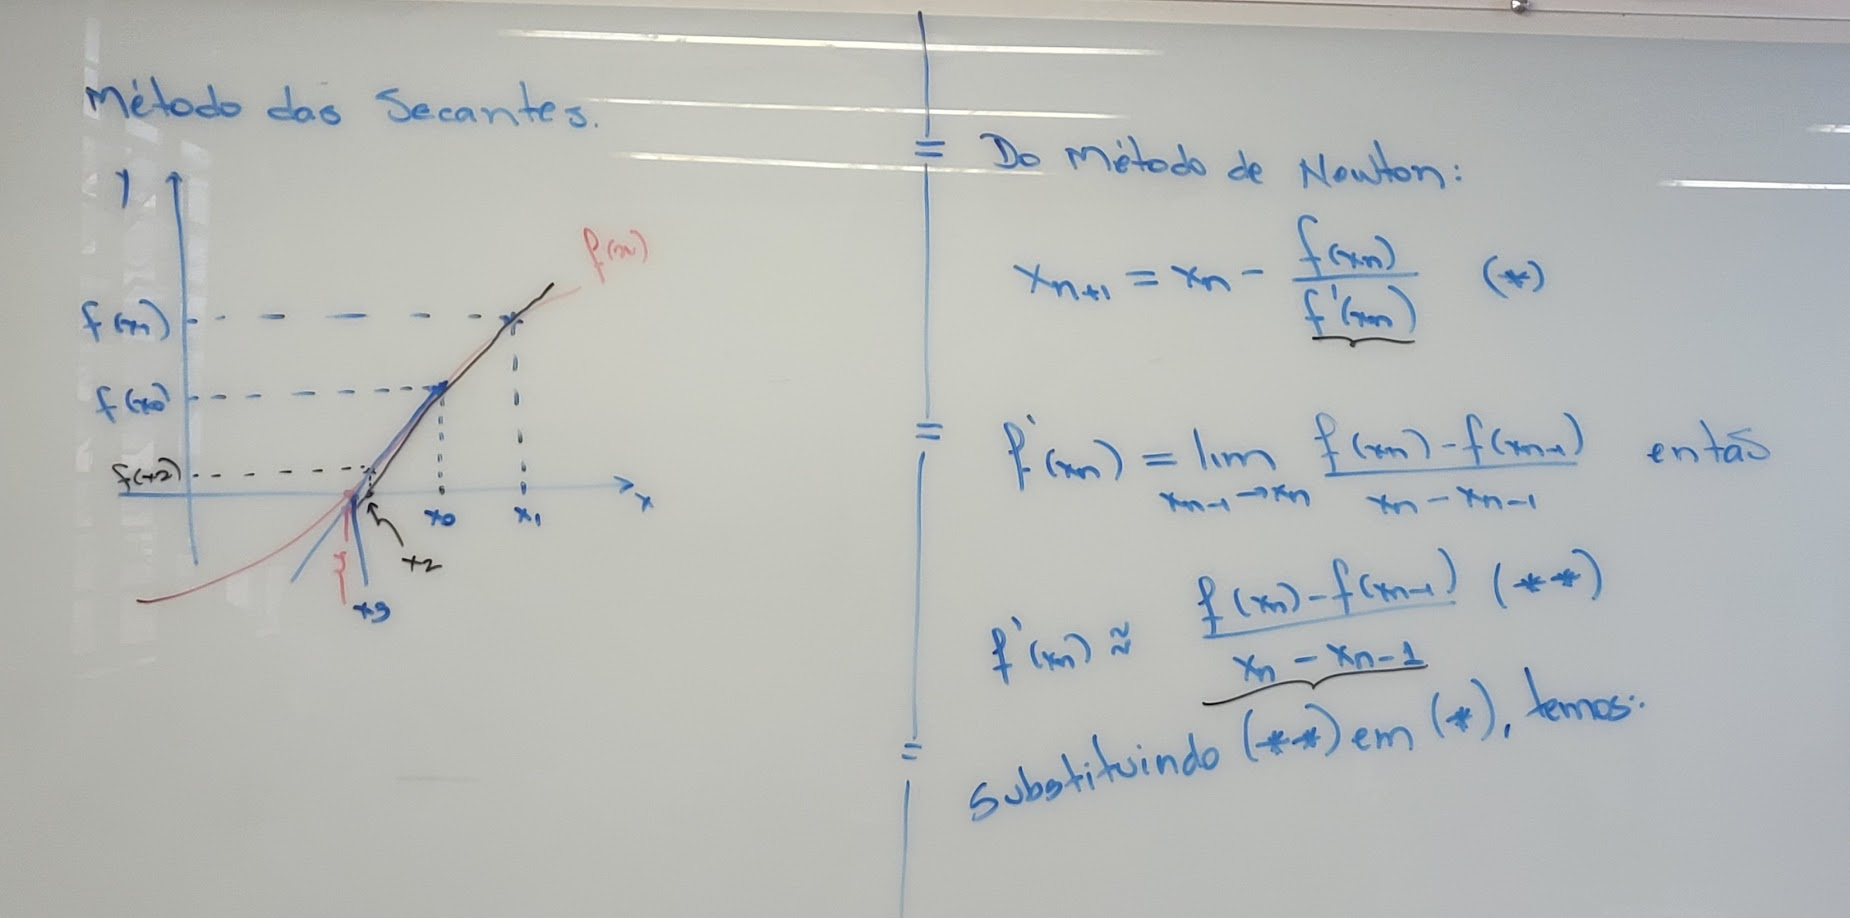 Método das Secantes.
y
f(x)
f(x1)
f(x0)
f(x2)
x0
x1
x
x2
ξ
x3
Do Método de Newton:
xn+1 = xn - f(xn) / f'(xn) (*)
f'(xn) = lim xn-1→xn f(xn) - f(xn-1) / xn - xn-1 então
f'(xn) ≈ f(xn) - f(xn-1) / xn - xn-1 (**)
Substituindo (**) em (*), temos: